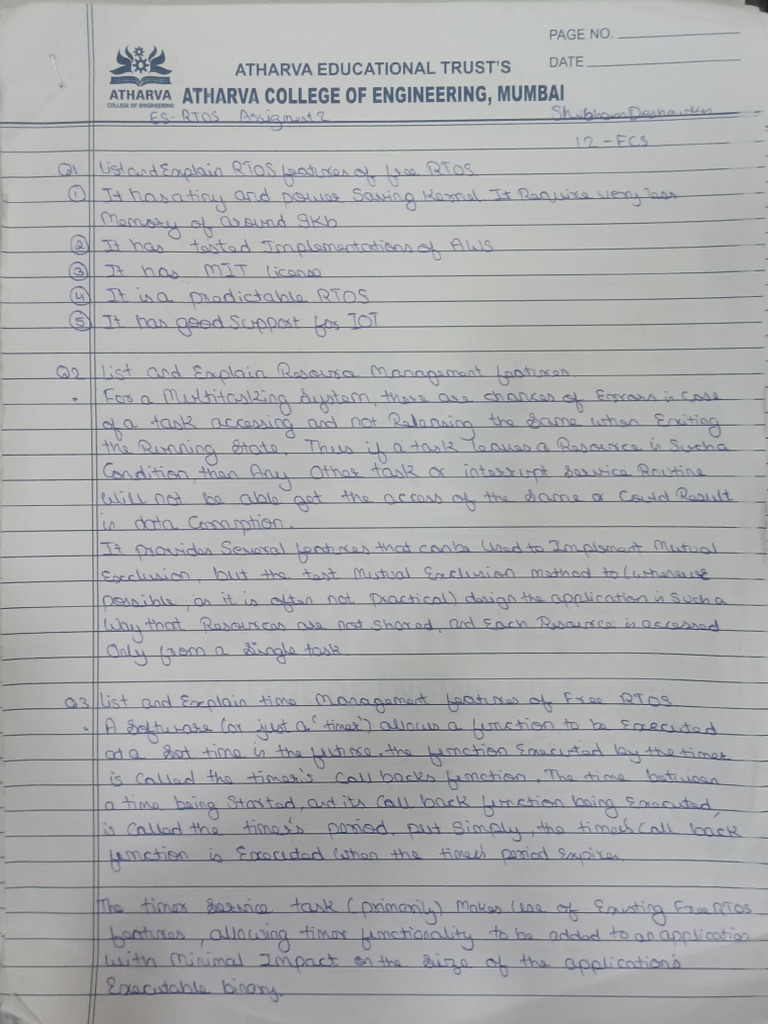 PAGE NO.
DATE
ATHARVA EDUCATIONAL TRUST'S
ATHARVA
COLLEGE OF ENGINEERING
ATHARVA COLLEGE OF ENGINEERING, MUMBAI
ES-RTOS Assigment 2
Shubham
12-ECS
Q1 List and Explain RTOS features of free RTOS
① It has a tiny and power Saving Kernel It Require very less
Memory of around 9kb
② It has tested Implementations of AWS
③ It has MIT license
④ It is a predictable RTOS
⑤ It has good Support for IOT
Q2 List and Explain Resource Management features
. For a Multitasking System, there are chances of Errors in case
of a task accessing and not Relansing the same when Exiting
the Running State. Thus if a task leaves a Resource in Such a
Condition, then Any Other task or interrupt service Routine
Will not be able got the access of the same or Could Result
in data Corruption.
It provides Several features that can be Used to Implement Mutual
Exclusion, but the test Mutual Exclusion method to (whenever
possible, as it is often not practical) design the application in Such a
Way that Resources are not Shared, and Each Resource is accessed
Only from a Single task
Q3 List and Explain time Management features of Free RTOS
. A Software (or just a 'timer') allows a function to be Executed
at a Set time in the future. the function Executed by the timer
is called the timer's call backs function. The time between
a time being Started, and its Call back function being Executed,
is Called the timer's period. put Simply, the timer's Call back
function is Executed when the timer's period Expires.
The timer Service task (primarily) Makes Use of Existing FreeRTOS
features, allowing timer functionality to be added to an application
with Minimal Impact on the Size of the application's
Executable binary.